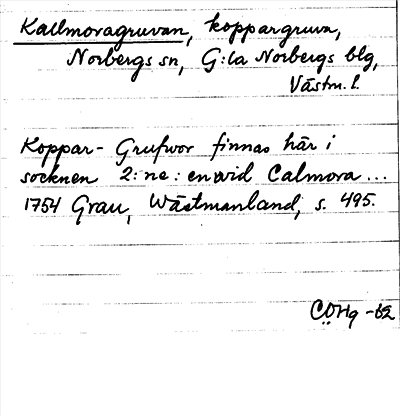 Kallmoragruvan, koppargruva,
Norbergs sn, G:la Norbergs blg,
Västm. l.
Koppar- Grufwor finnas här i
socknen 2:ne: en wid Calmora...
1754 Grau, Wästmanland, s. 495.
CÖHg -62